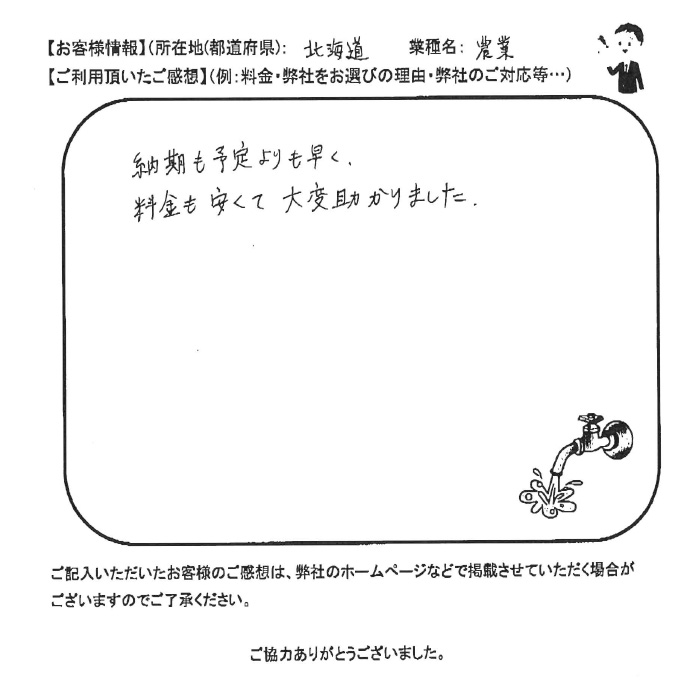 【お客様情報】(所在地(都道府県): 北海道 業種名: 農業
【ご利用頂いたご感想】(例:料金・弊社をお選びの理由・弊社のご対応等…)
納期も予定よりも早く、
料金も安くて大変助かりました.
ご記入いただいたお客様のご感想は、弊社のホームページなどで掲載させていただく場合が
ございますのでご了承ください。
ご協力ありがとうございました。